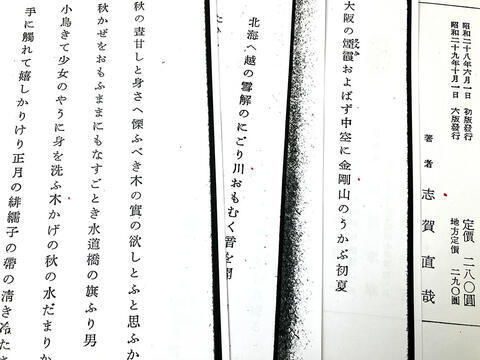 昭和二十八年六月一日　初版發行
昭和二十九年十月一日　六版發行
定價　二八〇圓
地方定價　二九〇圓
著者　志賀直哉
大阪の煙霞およばず中空に金剛山のうかぶ初夏
北海へ越の雪解のにごり川おもむく音を聞
秋の壺甘しと身さへ慄ふべき木の實の欲しとふと思ふか
秋かぜをおもふままにもなすごとき水道橋の旗ふり男
小鳥きて少女のやうに身を洗ふ木かげの秋の水だまりか
手に觸れて嬉しかりけり正月の緋繻子の帶の清き冷た